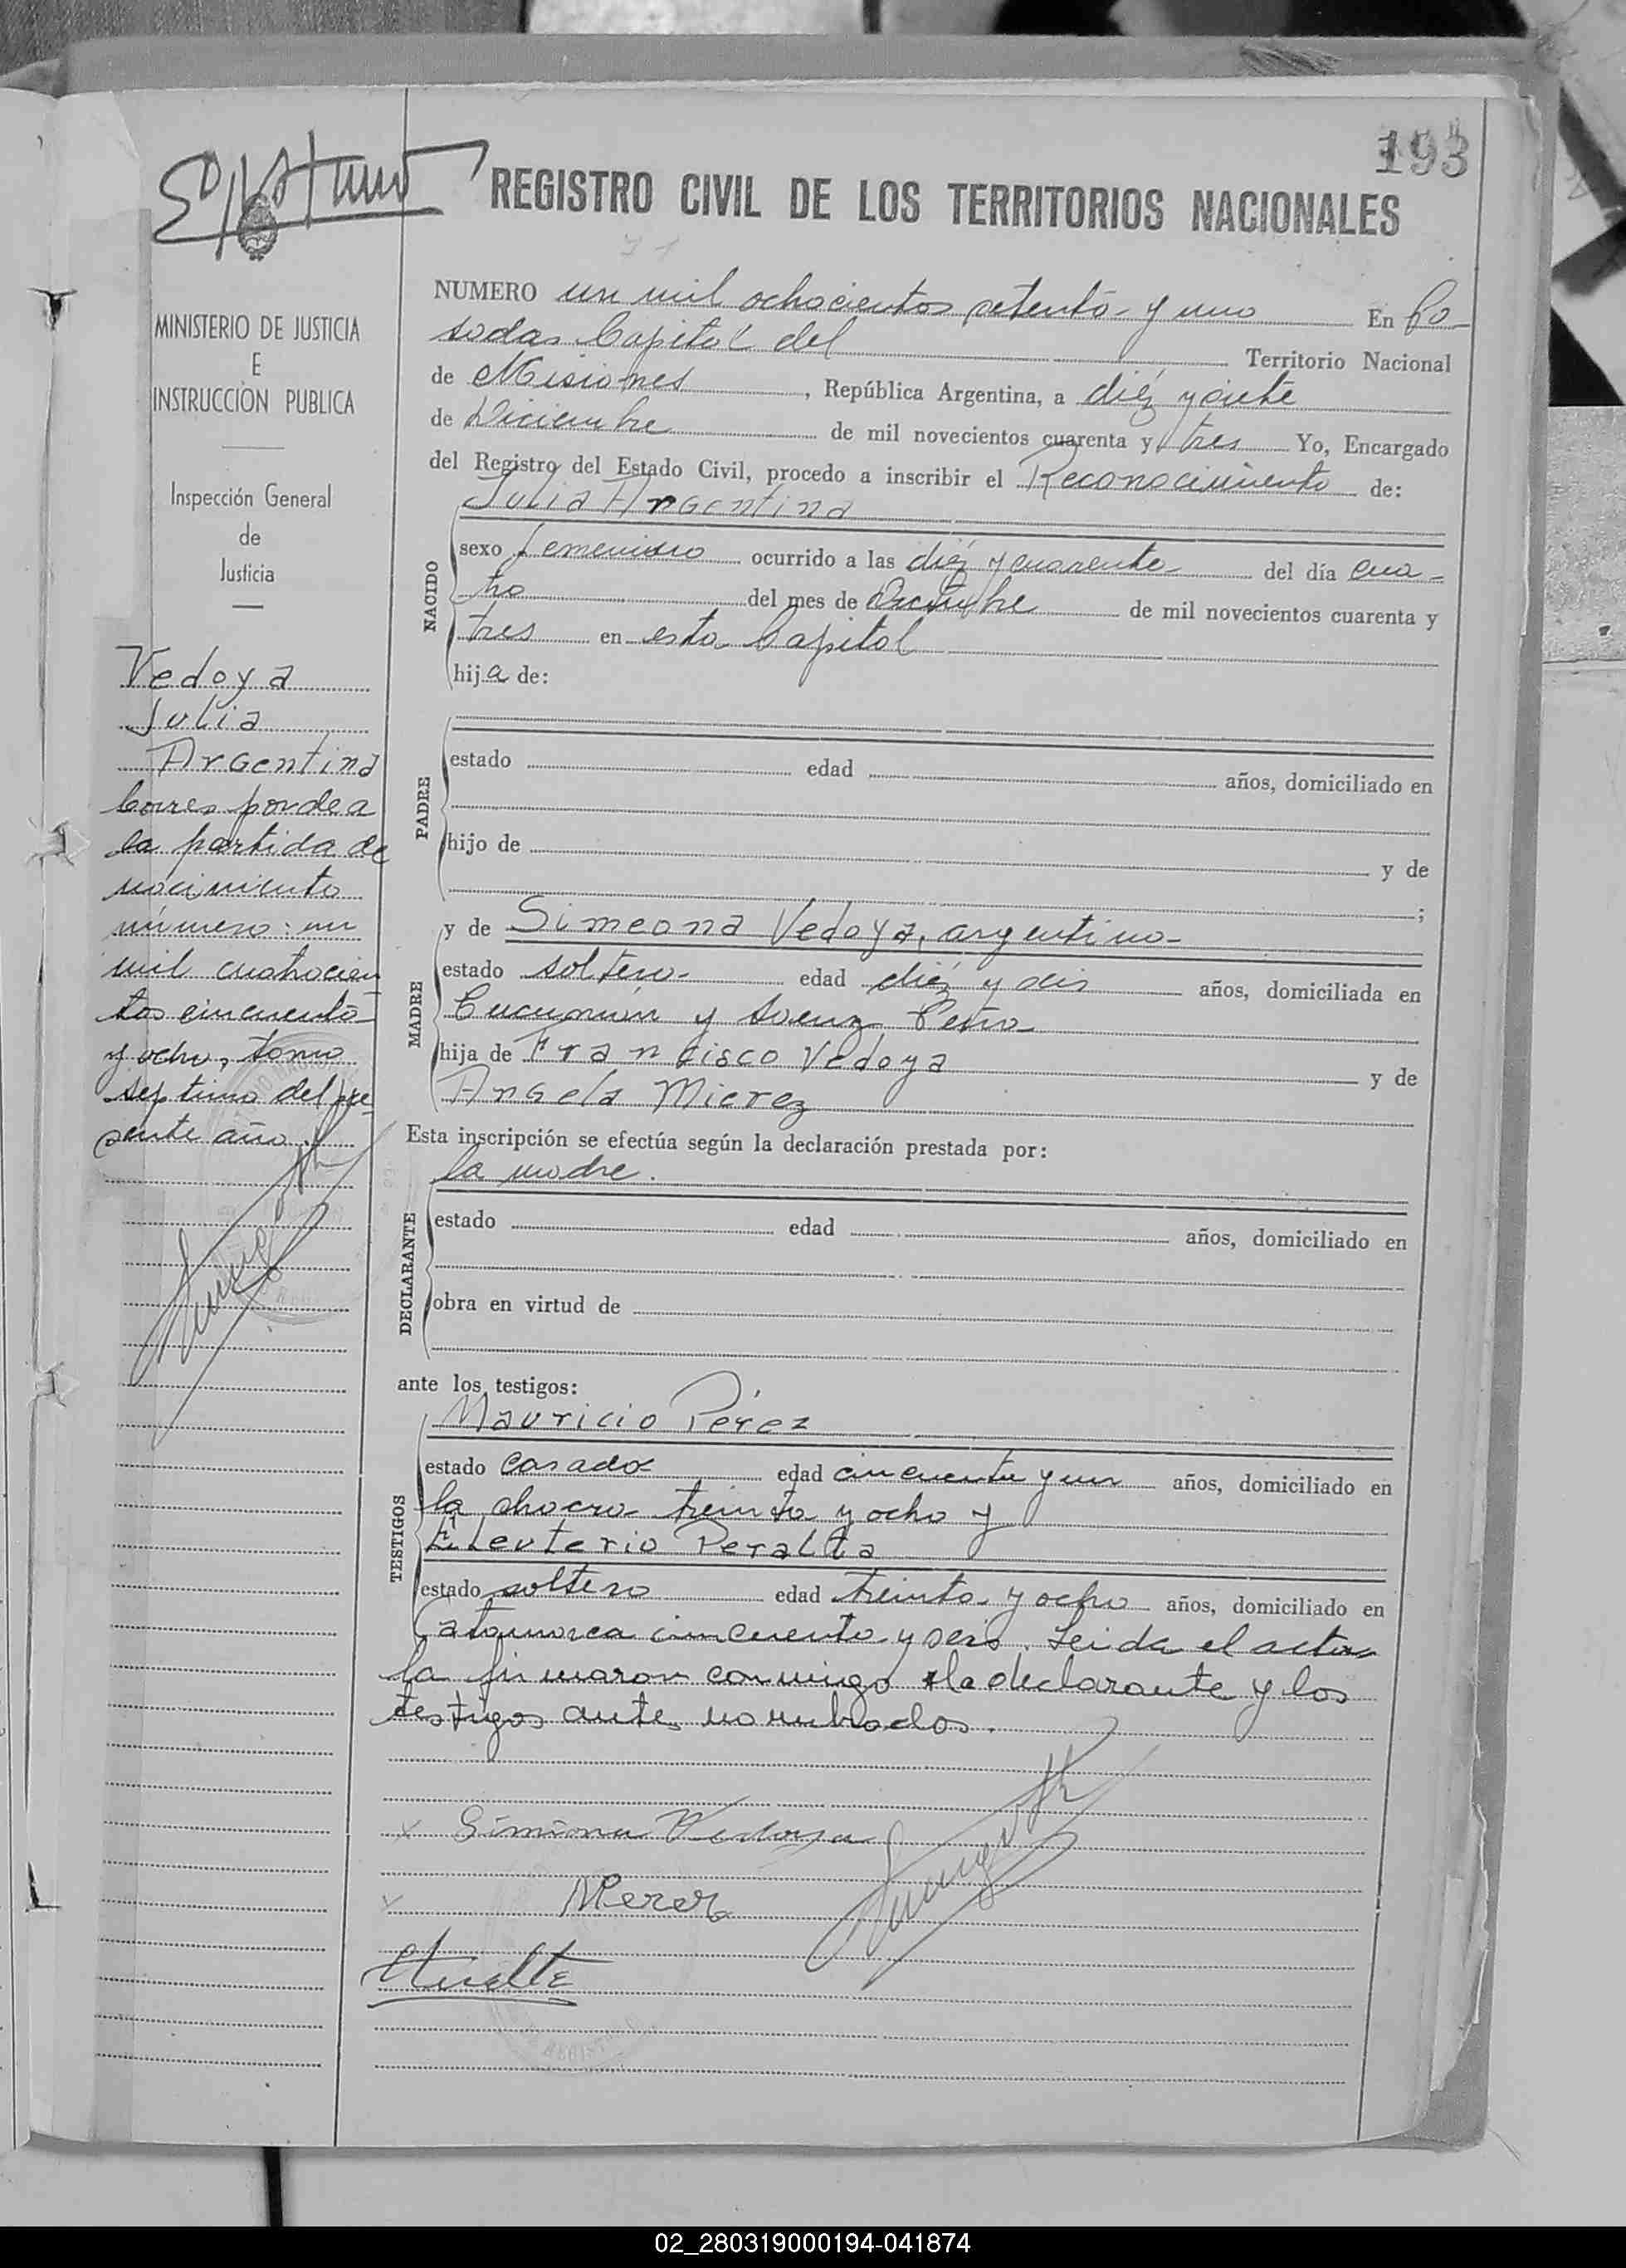 193
REGISTRO CIVIL DE LOS TERRITORIOS NACIONALES
MINISTERIO DE JUSTICIA
E
INSTRUCCIÓN PUBLICA
Inspección General
de
Justicia
Vedoya
Julia
Argentina
Corresponde a
la partida de
nacimiento
número: un
mil cuatrocien
tos cincuenta
y ocho, tomo
septimo del pre-
sente año.
NUMERO un mil ochocientos setenta y uno En Po-
sadas Capital del Territorio Nacional
de Misiones, República Argentina, a diéz y siete
de Diciembre de mil novecientos cuarenta y tres Yo, Encargado
del Registro del Estado Civil, procedo a inscribir el Reconocimiento de:
Julia Argentina
NACIDO
sexo femenino ocurrido a las diéz y cuarenta del día cua-
tro del mes de Octubre de mil novecientos cuarenta y
tres en esta Capital
hija de:
PADRE
estado edad años, domiciliado en
hijo de y de
;
MADRE
y de Simeona Vedoya, argentina
estado soltera edad diéz y seis años, domiciliada en
Tucumán y Saenz Peña
hija de Francisco Vedoya y de
Angela Mierez
Esta inscripción se efectúa según la declaración prestada por:
la madre.
DECLARANTE
estado edad años, domiciliado en
obra en virtud de
ante los testigos:
TESTIGOS
Mauricio Pérez
estado casado edad cincuenta y un años, domiciliado en
la chacra treinta y ocho y
Eleuterio Peralta
estado soltero edad treinta y ocho años, domiciliado en
Catamarca cincuenta y seis. Leida el acta
la firmaron conmigo la declarante y los
testigos antes nombrados.
x Simiona Vedoya
x
02_280319000194-041874